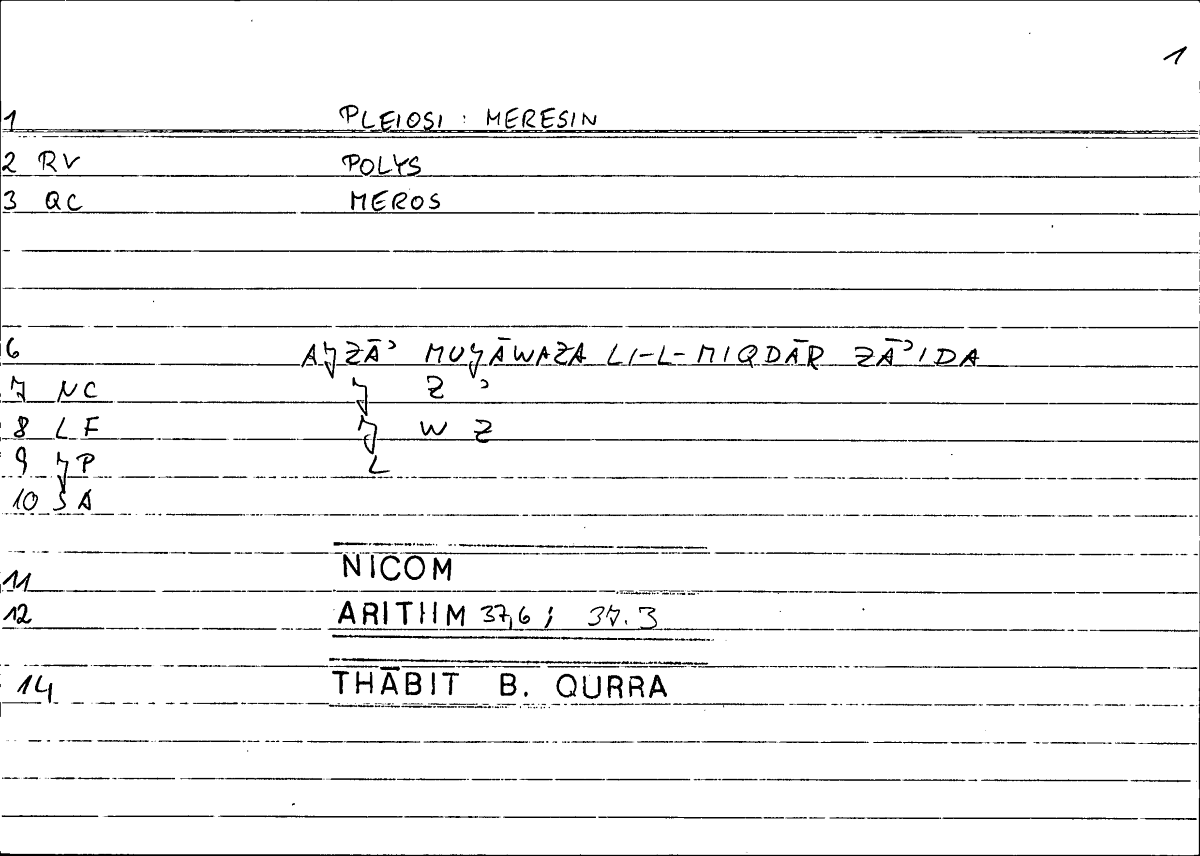 1
1 PLEIOSI : MERESIN
2 RV POLYS
3 QC MEROS
6 AǰZĀʾ MUǰĀWAZA LI-L-MIQDĀR ZĀʾIDA
7 NC ǰ Z ʾ
8 LF ǰ W Z
9 ǰP L
10 SA
11 NICOM
12 ARITHM 37,6 ; 37.3
14 THĀBIT B. QURRA